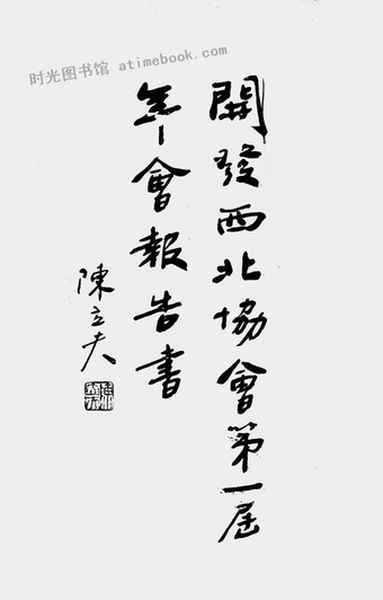 时光图书馆 atimebook.com
開發西北協會第一屆
年會報告書
陳立夫